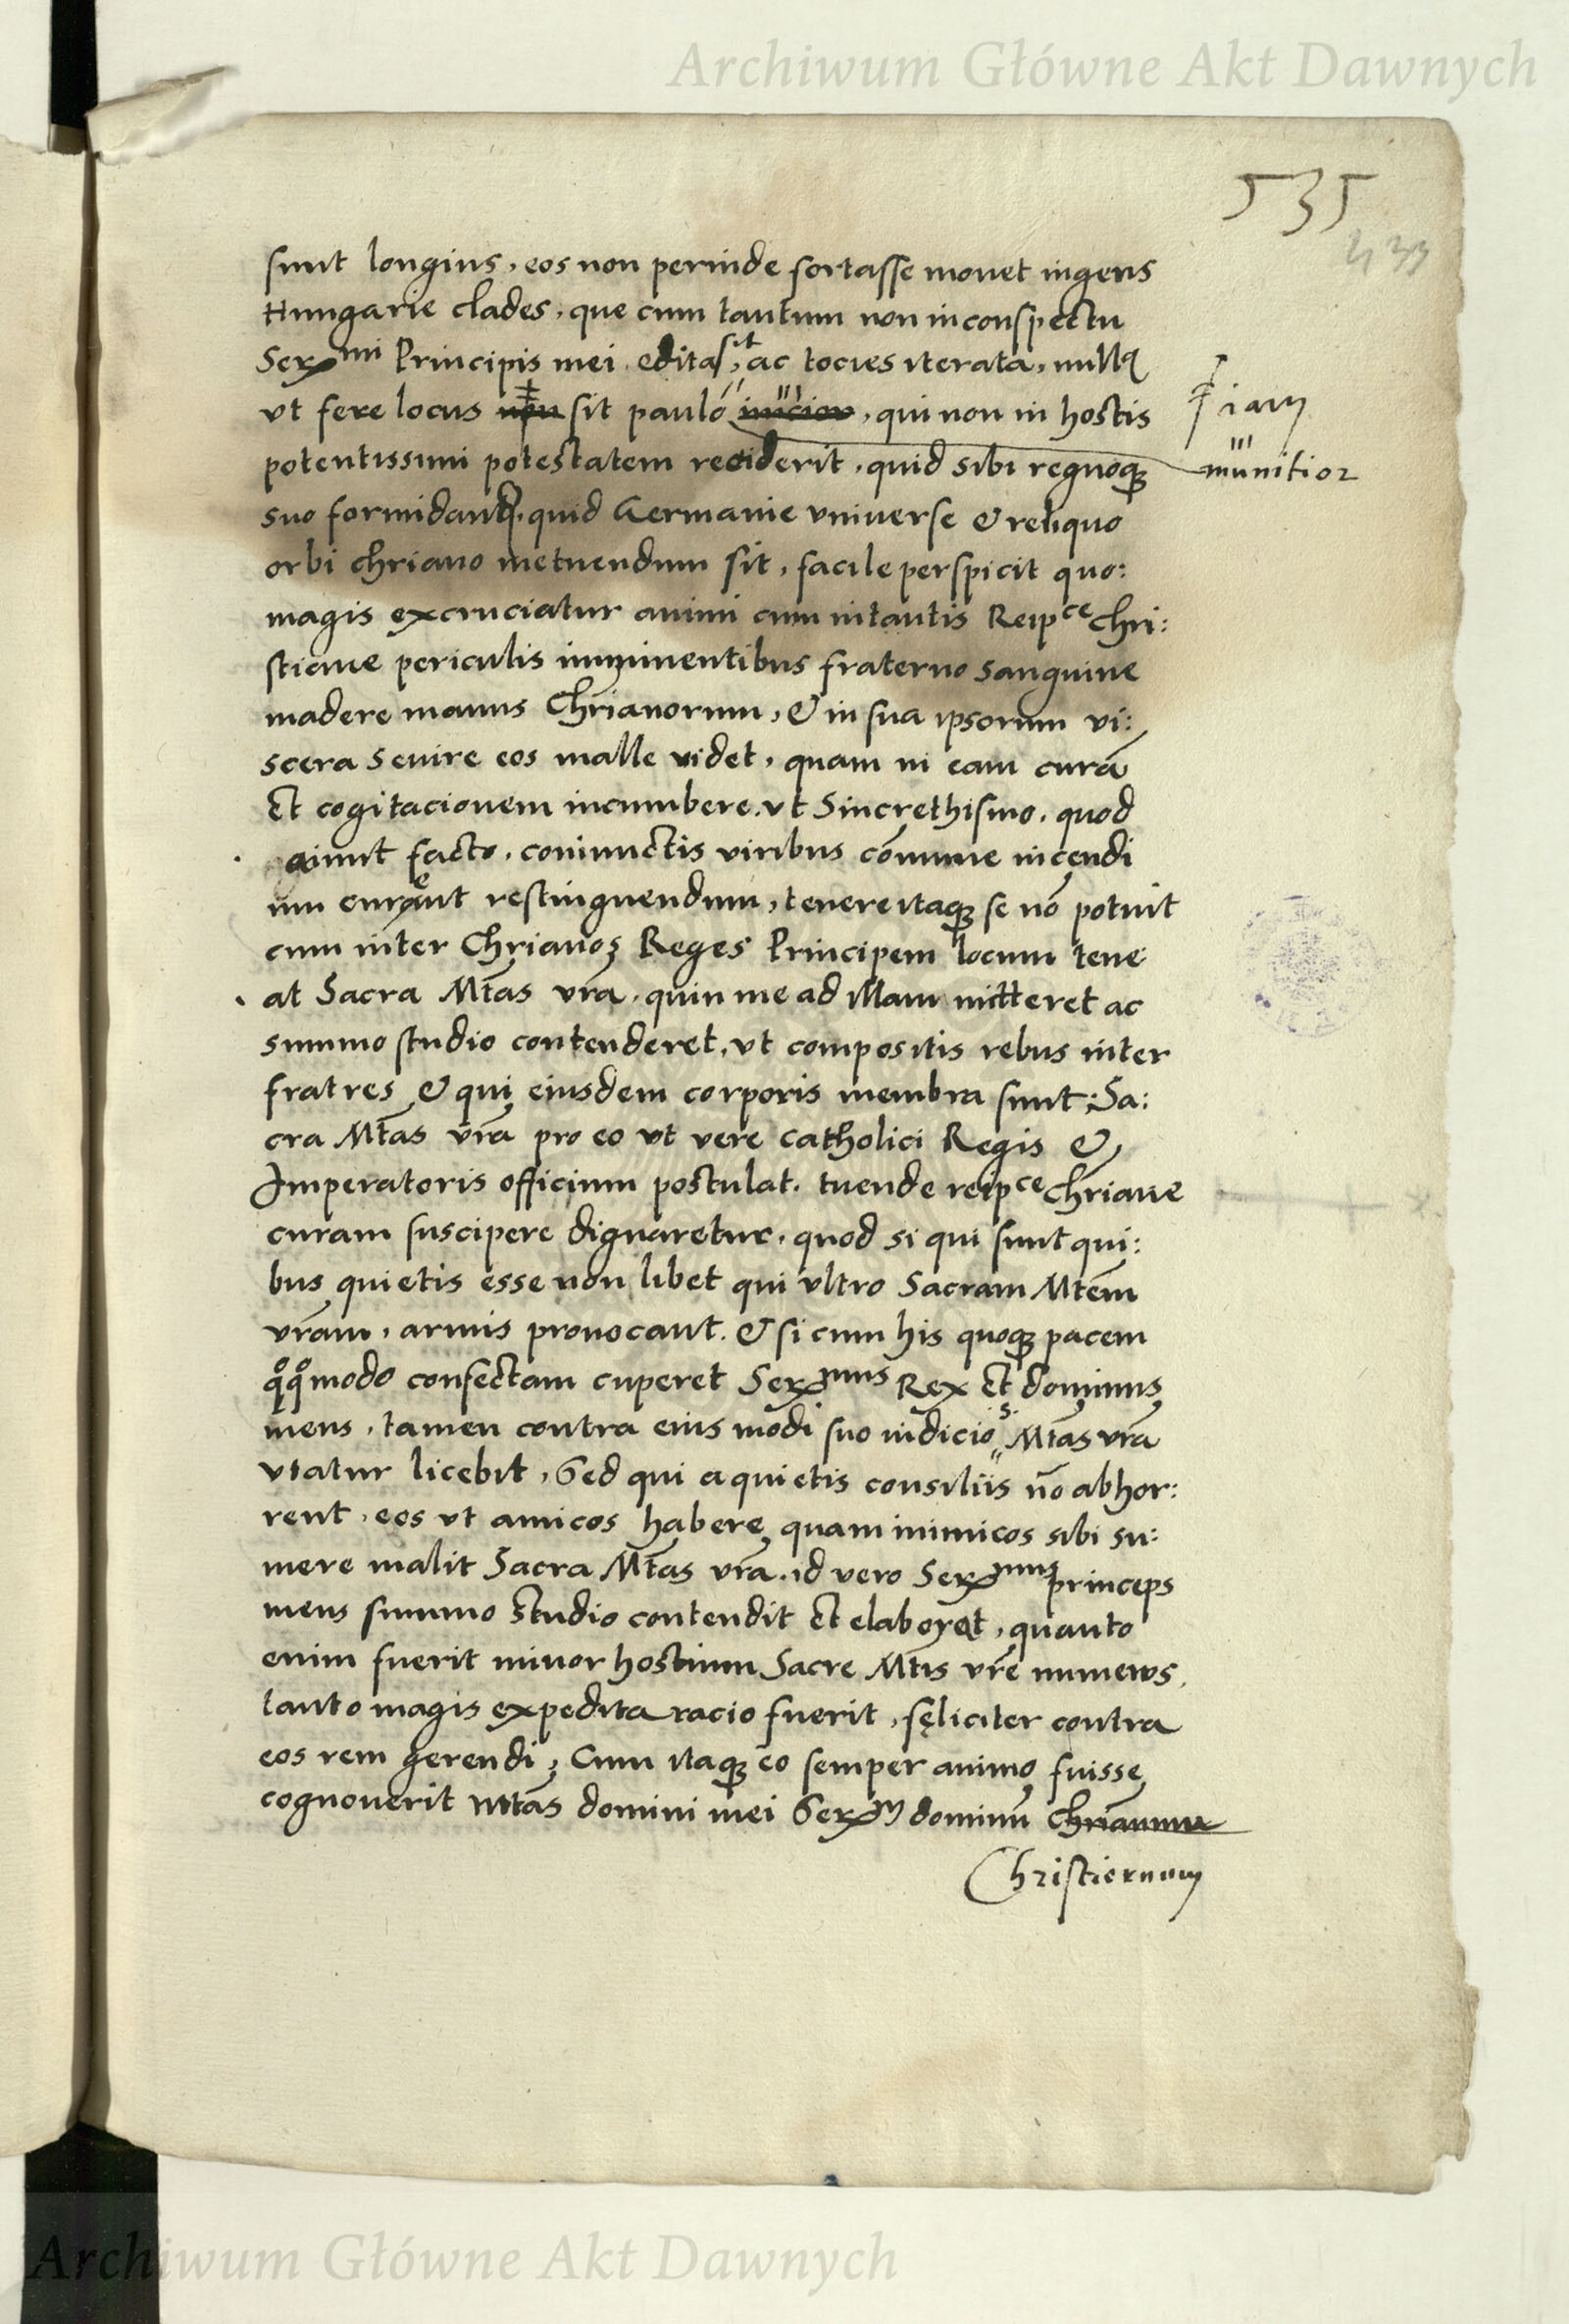 Archiwum Główne Akt Dawnych
535
433
sunt longius, eos non perinde fortasse mouet ingens
Hungarie clades, que cum tantum non in conspectu
Serᵐⁱ Principis mei edita sit, ac tocies iterata, nullꝰ
vt fere locus non sit paulo , qui non in hostis
etiam
potentissimi potestatem reciderit, quid sibi regnoqꝫ
munitior
suo formidand, quid Germanie vniuerse & reliquo
orbi chriano metuendum sit, facile perspicit quo:
magis excruciatur animi cum in tantis Reipᶜᵉ Chri:
stiane periculis imminentibus fraterno sanguine
madere manus Chrianorum, & in sua ipsorum vi:
scera seuire eos malle videt, quam in eam curā
Et cogitacionem incumbere. vt Sincrethismo. quod
aiunt facto. coniunctis viribus cōmune incendi
um curent restinguendum, tenere itaqꝫ se nō potuit
cum inter Chrianos Reges Principem locum tene
at Sacra Mtās vrā. quin me ad illam mitteret ac
summo studio contenderet, vt compositis rebus inter
fratres & qui eiusdem corporis membra sunt: Sa:
cra Mtās vrā pro eo vt vere catholici Regis &
Imperatoris officium postulat. tuende reipᶜᵉ chriane
curam suscipere dignaretur. quod si qui sunt qui:
bus quietis esse non libet qui vltro Sacram Mtēm
vrām, armis prouocant. & si cum his quoqꝫ pacem
qͦqͦmodo confectam cuperet Serᵐᵘˢ Rex Et dominus
meus, tamen contra eius modi suo iudicio S. Mtās vrā
vtatur licebit, Sed qui a quietis consiliis nō abhor:
rent, eos vt amicos habere quam inimicos sibi su:
mere malit Sacra Mtās vrā. id vero Serᵐᵘˢ princeps
meus summo studio contendit Et elaborat, quanto
enim fuerit minor hostium Sacre Mtīs vrē numerus,
tanto magis expedita racio fuerit, fęliciter contra
eos rem gerendi, Cum itaqꝫ eo semper animo fuisse
cognouerit Mtās domini mei Serᵐ dominū chrianum
Christiernum
Archiwum Główne Akt Dawnych